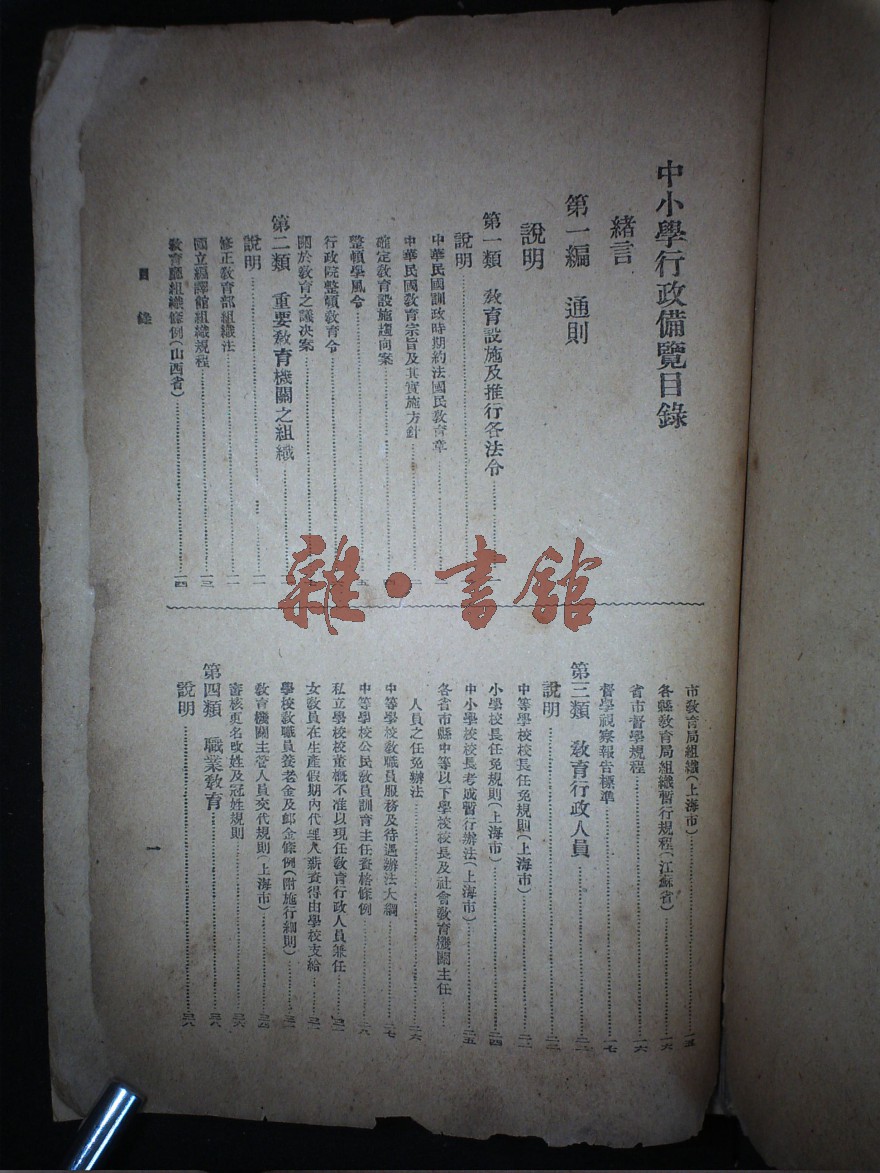 中小學行政備覽目錄
緒言
第一編　通則
說明
第一類　教育設施及推行各法令
說明
中華民國訓政時期約法國民教育章
中華民國教育宗旨及其實施方針
確定教育設施趨向案
整頓學風令 五
行政院整頓教育令
關於教育之議決案
第二類　重要教育機關之組織
說明 一一
修正教育部組織法 一一
國立編譯館組織規程 一三
教育廳組織條例(山西省) 一四
目錄
市教育局組織(上海市) 一五
各縣教育局組織暫行規程(江蘇省) 一六
省市督學規程 一六
督學視察報告標準 一七
第三類　教育行政人員 二二
說明 二二
中等學校校長任免規則(上海市) 二二
小學校長任免規則(上海市) 二四
中小學校校長考成暫行辦法(上海市) 二五
各省市縣中等以下學校校長及社會教育機關主任
人員之任免辦法 二六
中等學校教職員服務及待遇辦法大綱 二七
中等學校公民教員訓育主任資格條例 二八
私立學校校董概不准以現任教育行政人員兼任 三一
女教員在生產假期內代理人薪養得由學校支給 三一
學校教職員養老金及卹金條例(附施行細則) 三一
教育機關主管人員交代規則(上海市) 三四
審核更名改姓及冠姓規則 三六
第四類　職業教育 三八
說明 三八
一
雜·書館